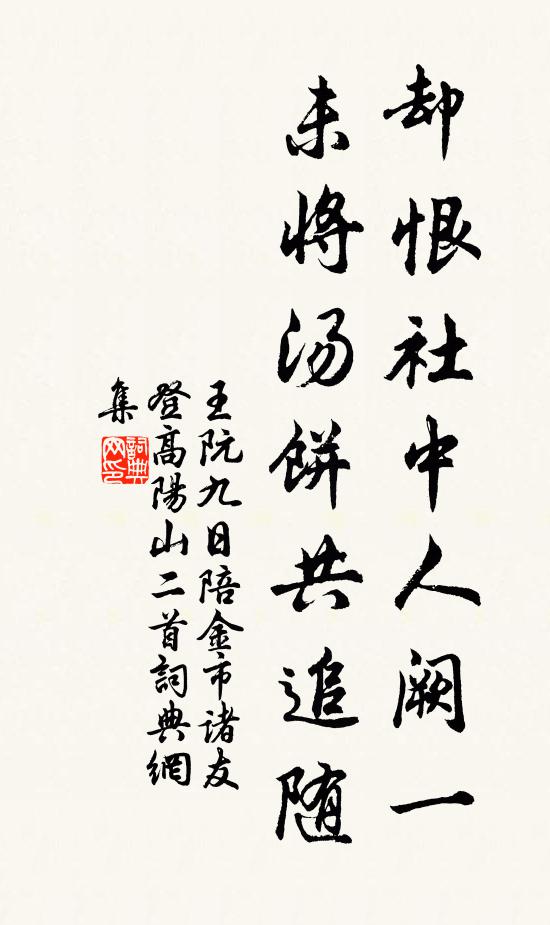 却恨社中人阙一
未将汤餅共追随
王阮九日陪金市诸友
登高陽山二首詞典網
集
詞典
网印